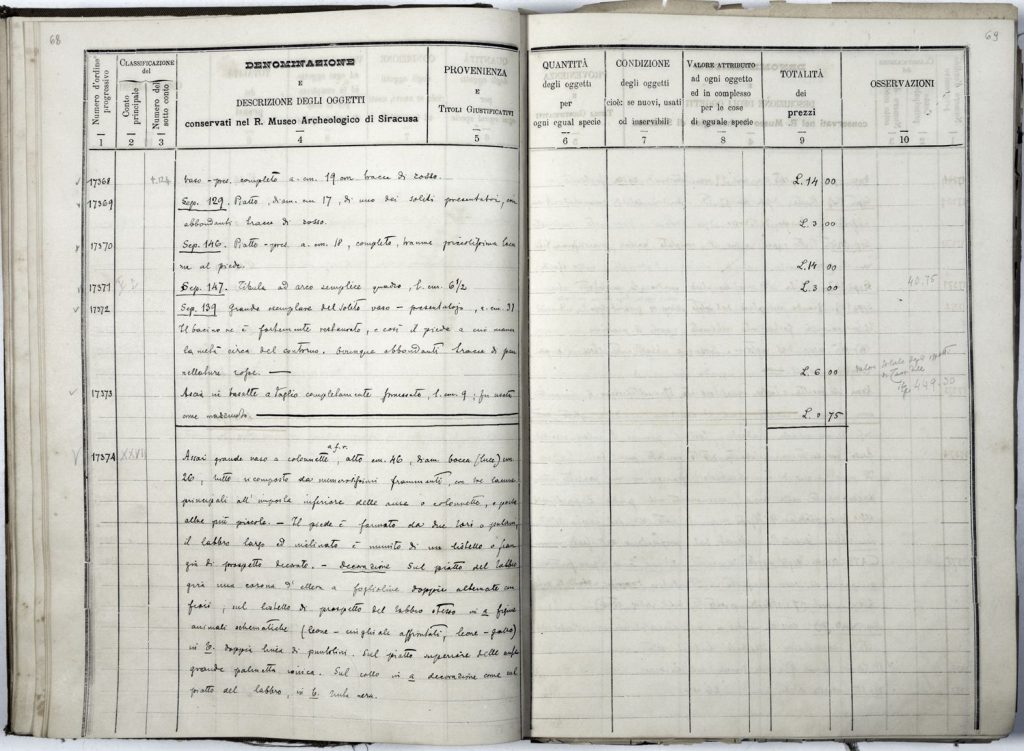 68
Numero d'ordine progressivo
CLASSIFICAZIONE del
Conto principale
Numero del sotto conto
DENOMINAZIONE
E
DESCRIZIONE DEGLI OGGETTI
conservati nel R. Museo Archeologico di Siracusa
PROVENIENZA
E
TITOLI GIUSTIFICATIVI
1 2 3 4 5
17368 vaso - pres. completo a. cm. 19 con tracce di rosso.
17369 Sep. 129. Piatto, diam. cm 17, di uno dei soliti presentatoi, con
abbondanti tracce di rosso.
17370 Sep. 146. Piatto - pres. a. cm. 18, completo, tranne piccolissima lacu
na al piede.
17371 Sep. 147. Fibula ad arco semplice quadro, l. cm. 6 1/2
17372 Sep. 139 Grande esemplare del solito vaso - presentatoio, a. cm. 31
Il bacino ne è fortemente restaurato, e così il piede a cui manca
la metà circa del contorno. Ovunque abbondanti tracce di pen
nellature rosse. —
17373 Ascia in basalte a taglio completamente, l. cm. 9; fu usata
come
17374 XXVII Assai grande vaso a colonnette a.f.r., alto cm. 46, diam. bocca (luce) cm.
26, tutto ricomposto da numerosissimi frammenti, con tre lacune
principali all'imposta inferiore delle anse o colonnette, e poche
altre più piccole. - Il piede è formato da due tori o
il labbro largo ed inclinato è munito di un listello o fran
gia di prospetto decorato. - Decorazione Sul piatto del labbro
gira una corona d'ellera a foglioline doppie alternate con
fiori; sul listello di prospetto del labbro stesso in a figure
animali schematiche (leone - cinghiali affrontati, leone - gallo)
in b. doppia linea di puntolini. Sul piatto superiore delle anse
grande palmetta ionica. Sul collo in a decorazione come sul
piatto del labbro, in b. tinta nera.
69
QUANTITÀ
degli oggetti
per
ogni egual specie
CONDIZIONE
degli oggetti
cioè: se nuovi, usati
od inservibili
VALORE ATTRIBUITO
ad ogni oggetto
ed in complesso
per le cose
di eguale specie
TOTALITÀ
dei
prezzi
OSSERVAZIONI
6 7 8 9 10
L. 14 00
L. 3 00
L. 14 00
L. 3 00
40.75
L. 6 00
valore totale degli oggetti
449.30
L. 0 75